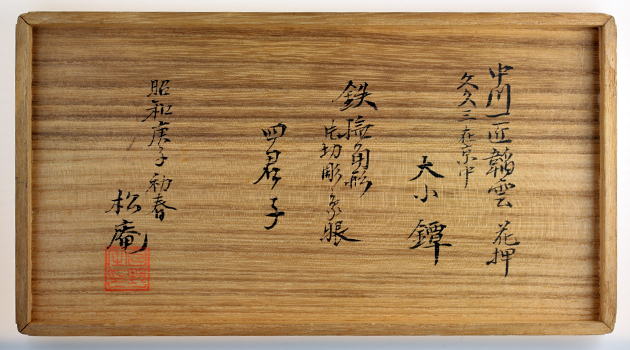 中川一匠韜雲 花押
文久三在京中
大小鐔
鉄撫角形
片切彫象眼
四君子
昭和庚子初春
松庵